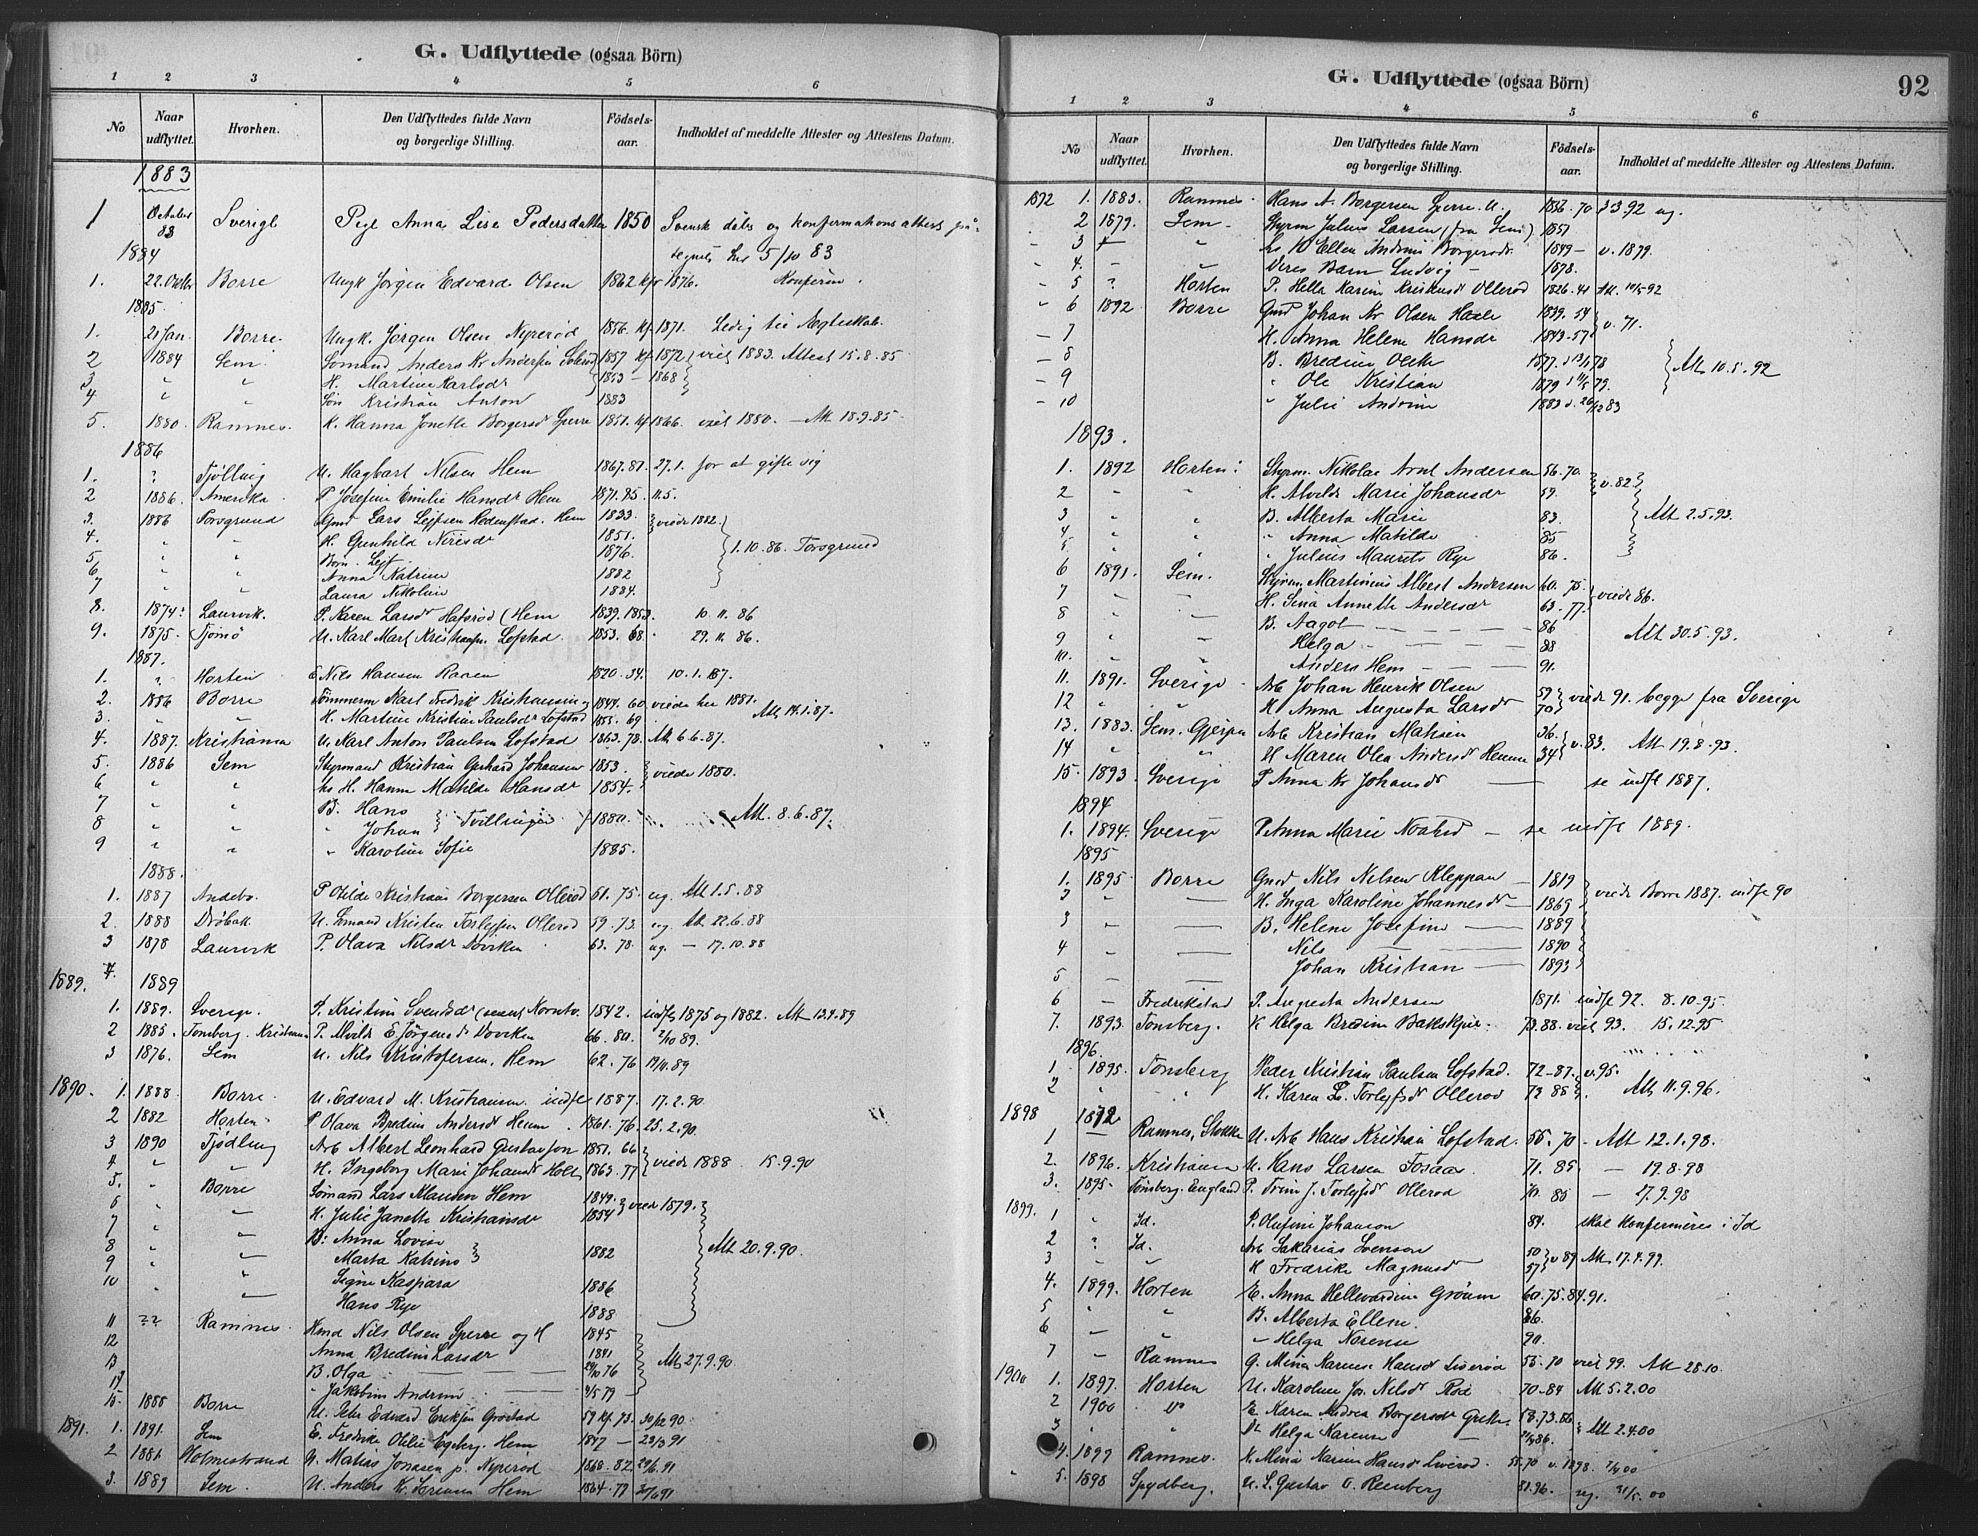 G. Udflyttede (ogsaa Börn)
1 2 3 4 5 6
No Naar udflyttet. Hvorhen. Den Udflyttedes fulde Navn og borgerlige Stilling. Födsels-aar. Indholdet af meddelte Attester og Attestens Datum.
1883
1 October 83 Sverige Pige Anna Lise Pedersdatter 1850 Svensk dåbs og konfirmations attest på-
tegnet her 5/10 83
1884
1. 22. Octbr Borre Ungk Jörgen Edvard Olsen 1862 kfr 1876. Konferm.
1885.
1. 21 Jan Borre. Ungk. Jörgen Olsen Nyrerød 1856. kf. 1871. Ledig til Ægteskab.
2 1884 Sem. Sömand Anders Kr Andersen 1857 kf. 1872 viet 1883. Attest 15.8.85
3 " " H. Martine Karlsdr 1853 - 1868
4 " " Sön Kristian Anton 1883
5. 1880. Ramnes. K. Hanna Jonette Borgersd Sperre 1851. kf 1866. viet 1880. - Att 18.9.85
1886
1. ? Tjölling U. Hagbart Nilsen Hem 1867.81. 27.1. for at gifte sig
2 1886. Amerika P Josefine Emilie Hansdr Hem 1871.85. 11.5.
3. 1886 Porsgrund Gmd Lars Lejfsen Hem 1833 viede 1882.
4. " " H. Gunhild Nirisdr 1851.
5 " " Börn. Lejf 1876. 1.10.86. Porsgrund
6 " " Anna Katrine 1882
7 " " Laura Nikoline 1884.
8. 1874. Laurvik. P. Karen Larsdr Hafsrød (Hem 1839. 1853. 10.11.86
9. 1875. Tjömö U. Karl Marf. Kristiansen Lofstad. 1853. 68. 29.11.86.
1887.
1. " Horten E Nils Hansen Raaen 1820.34. 10.1.87.
2. 1886 Borre Tömmerm Karl Fredrik Kristiansen og 1844.60 viede her 1881.
3. " " H. Martine Kristine Paulsdr Lofstad 1853.69 Att 14.1.87.
4. 1887. Kristiania U. Karl Anton Paulsen Lofstad 1863.78. Att 6.6.87.
5. 1886 Sem Styrmand Kristian Gerhard Johansen 1853. viede 1880.
6 " " hs H. Hanne Matilde Hansdr 1854.
7 " " B. Hans Tvillinger 1880. Att. 8.6.87.
8 " " " Johan
9 " " " Karoline Sofie 1885.
1888.
1. 1887 Andebo. P Otilde Kristiane Borgersen Ollerød 61.75. ug. Att 1.5.88
2. 1888 Dröbak U. Smand Kristen Torlejfsen Ollerød 59.73. ug. Att 22.6.88
3 1878 Laurvik P. Olava Nilsdr Dovrken 63.78. ug. - 17.10.88
4.
1889. 1889
1. 1889. Sverige. P. Kristine Svendsdr 1842. indfl 1875 og 1882. Att 13.9.89
2 1885. Tönsberg. Kristiania P. Alvilde E Jörgensdr Dovrken 66.80. 2/10 89.
3 1876. Sem U. Nils Kristofersen, Hem 62.76 19/11.89
1890. 1. 1888 Borre. U. Edvard M. Kristiansen. indfl 1887. 17.2.90
2 1882 Horten P Olava Bredine Andersdr Heum 1861.76. 25.2.90.
3 1890 Tjödling Arb Albert Leonhard Gustavson 1851.66
4. " " H. Ingeborg Marie Johansdr Holt 1863.77 viede 1888 15.9.90
5. " Borre Sömand Lars Klausen Hem 1849. viede 1879.
6 " " H. Julie Janette Kristiansdr 1854
7 " " B: Anna Lovise 1882
8 " " Marta Katrine Att 20.9.90.
9 " " Signe Kaspara 1886
10 " " Hans Rye 1888
11 ?? Ramnes. Hmd Nils Olsen Sperre og H 1845
12 Anna Bredine Larsdr 1841 Att 27.9.90
13 B. Olga 29/10 76
14 " Jakobine Andrine 4/5 79
15 1888 Borre U. Peter Edvard Eriksen Grostad 59 kf. 73. 30/12 90
1891. 1. 1891. Sem E. Fredrike Otilie Egeberg. Hem 1847 - 23/3 91
2 1886 Holmestrand U. Matias Jonasen p. Nyrerød 1868.82. 29/6.91
3. 1889 Sem. U. Anders K. Hem 1864.79
G. Udflyttede (ogsaa Börn) 92
1 2 3 4 5 6
No Naar udflyttet. Hvorhen. Den Udflyttedes fulde Navn og borgerlige Stilling. Födsels-aar. Indholdet af meddelte Attester og Attestens Datum.
1892 1. 1883. Ramnes. Hans A. Borgersen Sperre. U. 1856.70 23.3.92 ug.
2 1879. Sem Styrm Julius Larsen (fra Sem) 1851
3 " hs H Ellen Andrine Borgersdr 1849 - v. 1879.
4. - " Deres Barn Ludvig - 1878.
5 ? Horten P. Helle Karine Ollerød 1826.41 Att. 10/5 92
6 1892 Borre Gmd Johan Ar Olsen Hasle 1839.54
7 H. Anna Helene Hansdr 1843-57 v. 71.
8 B. Bredine Otilie 1877. 78
9 " Ole Kristian 1879 79. Att 10.5.92
10 " Julie Andrine 1883 d. 26/12 83
1893.
1. 1892 Horten: Styrm. Nikolai Arnt Andersen 56.70.
2 " " H. Alvilde Marie Johansdr 59. v. 82
3 " " B. Alberta Marie 83. Att 2.5.93.
4 " " " Anna Matilde 85
5 " " " Julius Maurits Rye 86.
6 1891. Sem. Styrm. Martinius Albert Andersen 60.75.
7 " " H. Sina Annette Andersdr 63.77. viede 86.
8 " " B. Aagot 86
9 " " Helga 88 Att 30.5.93.
10. " " Anders Hem 91.
11. 1891. Sverige Arb Johan Henrik Olsen 59
12 " " H Anna Augusta Larsdr 70 viede 91. begge fra Sverige
13. 1883. Sem. Gjerpen Arb Kristian Matisen 36.
14 " " H Maren Olea Andersdr Heum 34 v. 83. Att 19.8.93.
15 1893 Sverige P Anna Kr Johansdr se indfl 1887.
1894
1. 1894. Sverige P. Anna Marie - se indfl 1889.
1895
1. 1895 Borre Gmd Nils Nilsen Kleppan 1819
2 " - H. Inga Karoline Johannesdr 1869 viede Borre 1887. indfl 90
3 " - B. Helene Josefine 1889
4 " - Nils 1890
5 - - Johan Kristian 1893
6 - Fredrikstad P. Augusta Andersen 1871. indfl 92. 8.10.95
7. 1893. Tönsberg. K Helga Bredine Bakskjer. 73.88. viet 93. 15.12.95
1896.
1 1895. Tönsberg Peder Kristian Paulsen Lofstad. 72-87. v. 95.
2 " " H. Karen L. Torlejfsdr Ollerød 72 88 Att 11.9.96.
1898 1872
1 Ramnes, Stokke U. Arb Hans Kristian Lofstad. 55.70 - Att 12.1.98.
2. 1896. Kristiania U. Hans Larsen Fosaas. 71.85 - 19.8.98
3. 1895. Tönsberg. England P. Trine J. Torlejfsdr Ollerød 70.85 - 17.9.98
1899. 1 " Id. P. Olufine Johanson 84. skal konfirmeres i Id
2 ? Id. Arb Sakarias Svenson 50
3 " " H Fredrike Magnusdr 57 v 89 Att 17.4.99.
4. 1899. Horten E. Anna Hellevardine Gröum 60.75.84.91.
5 " " B. Alberta Ellene 86.
6 - " " Helga Narense 90.
7 - Ramnes G. Mina Karine Hansdr Liverød 55.70 viet 99. Att 28.10.
1900 1. 1897. Horten U. Karoline Jos. Nilsdr Röd 70-84 Att 5.2.00
2 1900 " E. Karen Andrea Borgersdr 58.73.86
3 " " Helga Karense Att 2.4.00
4. 1899 Ramnes. K. Mina Marine Hansdr Liverød. 55.70 v. 1898.
5. 1898 Spydberg. U. S. Gustav O. Reenberg 81.96. ug. 31/5.00